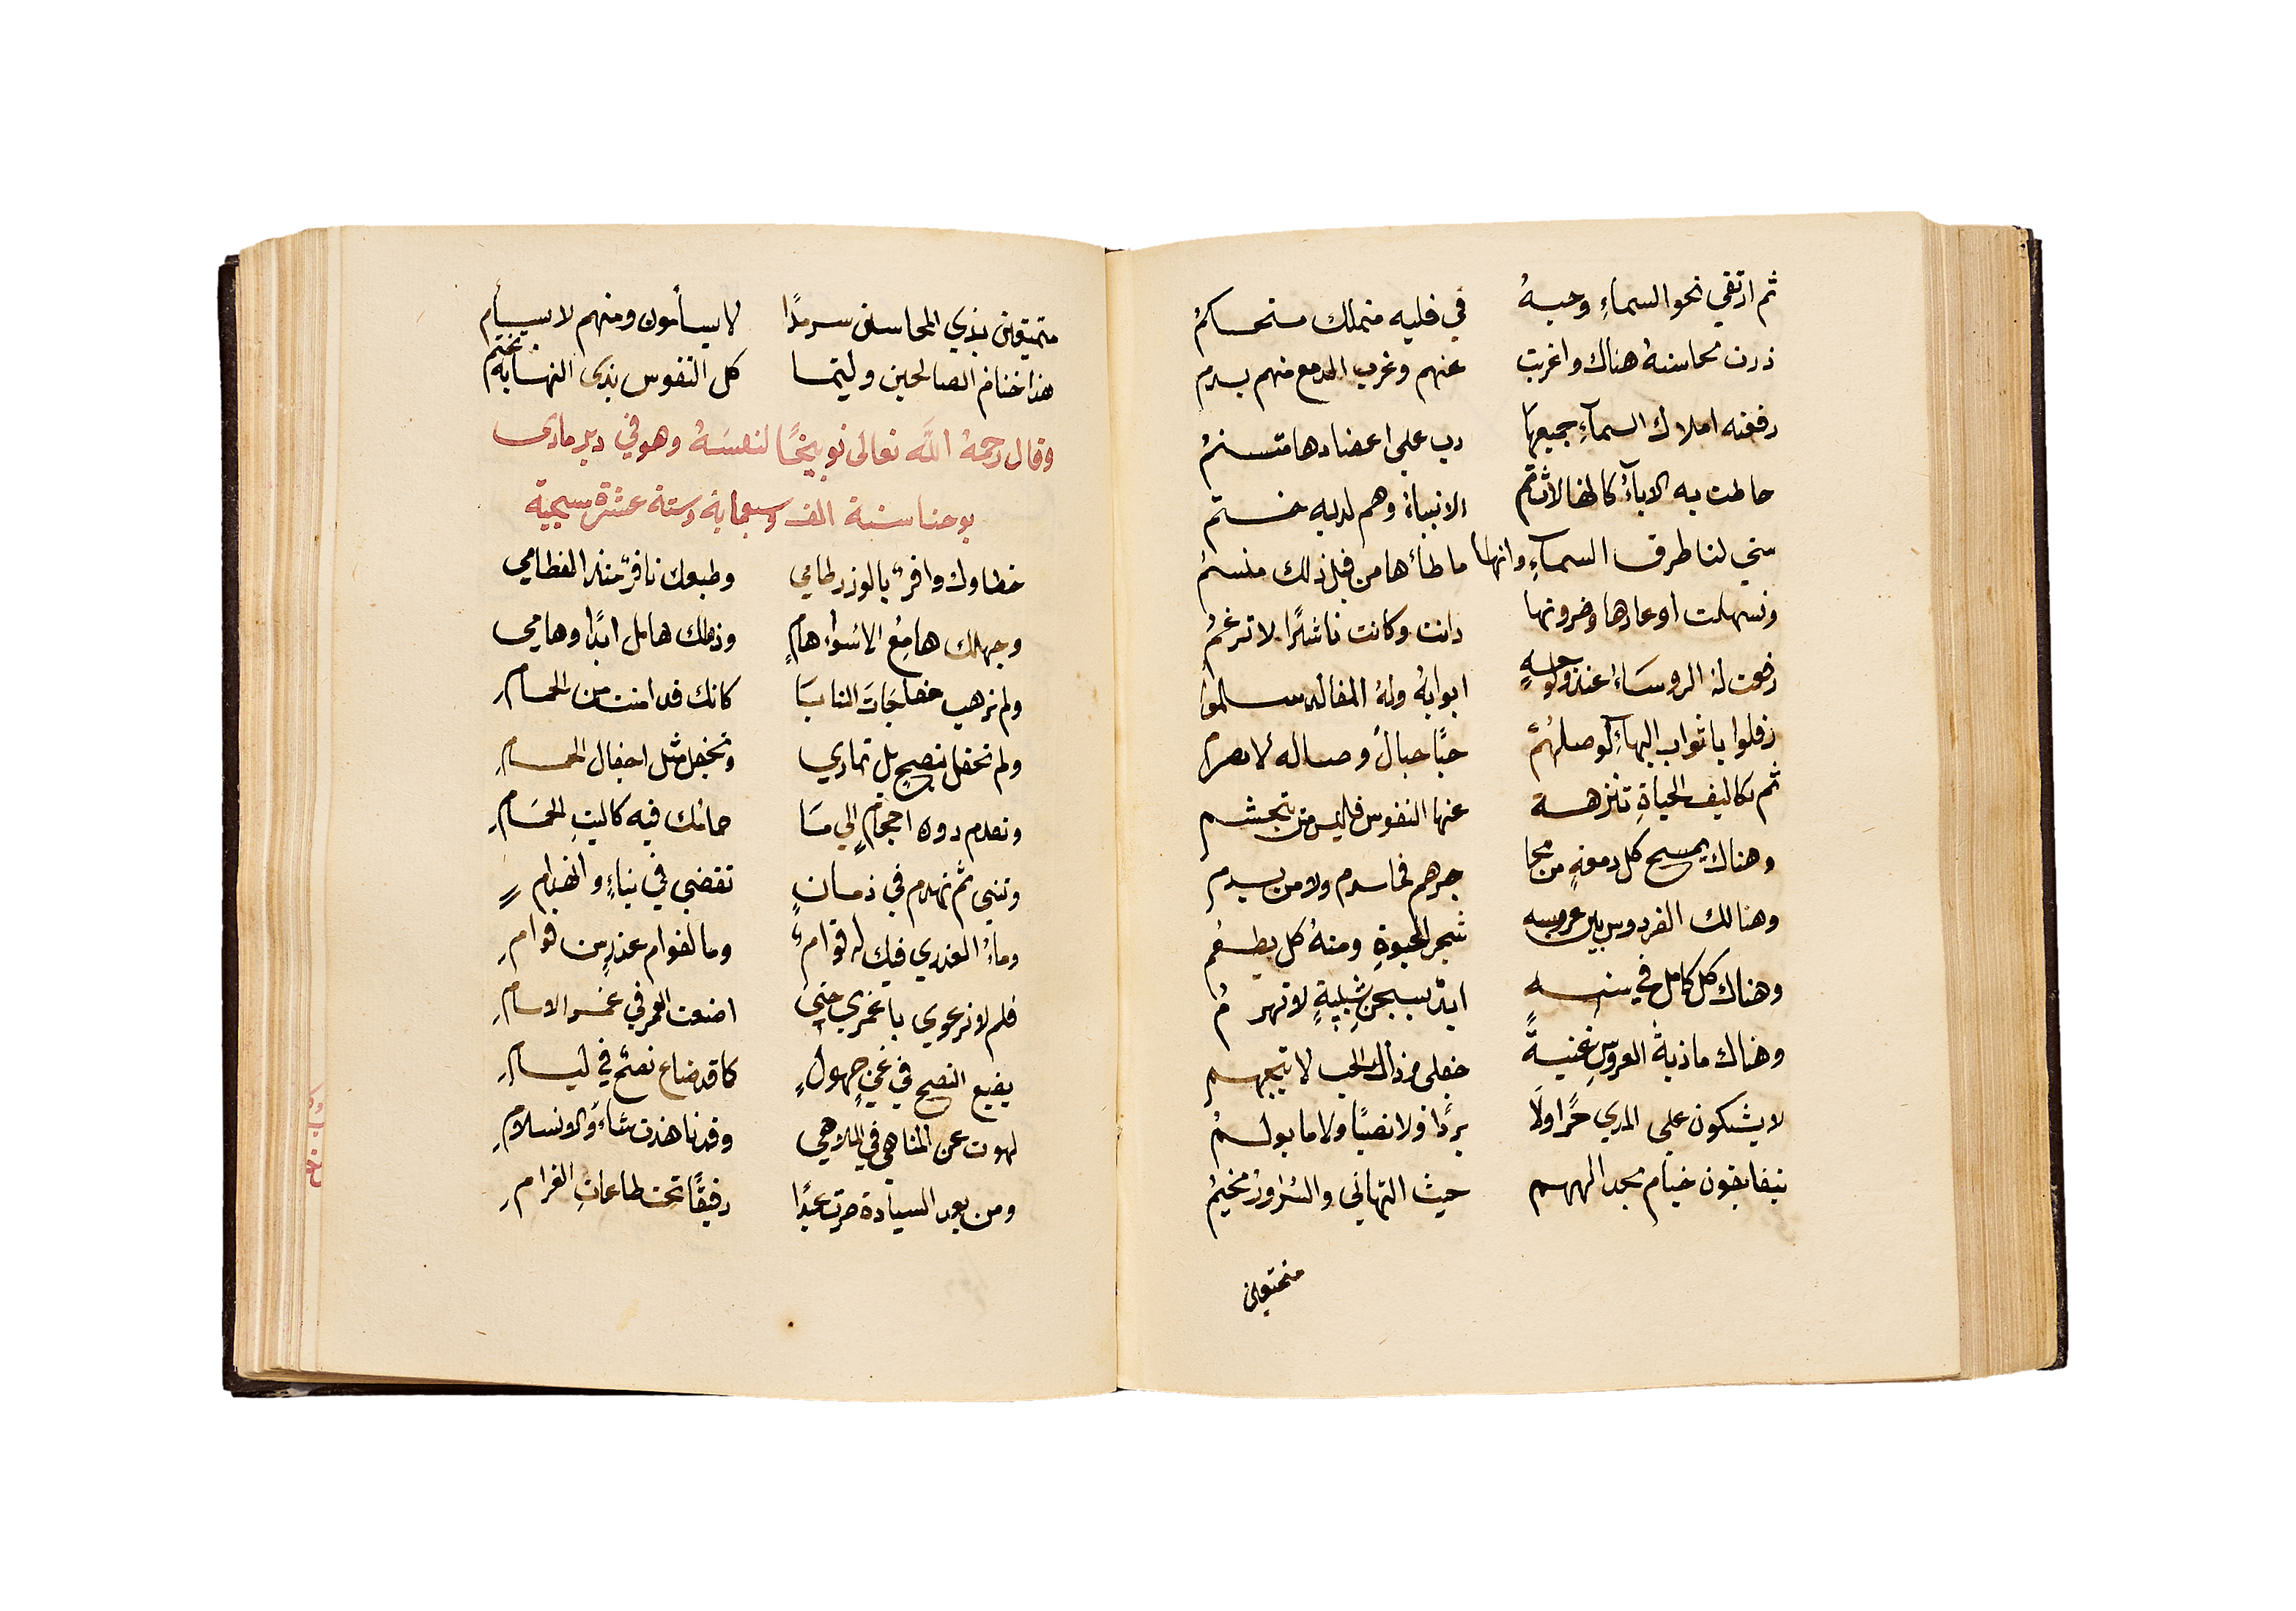 ثم ارتقي نحو السماءِ وحبهُ في قلبه متملك مستحكمُ
ذرت محاسنهُ هناك واغربت عنهم وغرب الدمع منهم يسدم
رفعته املاك السمآءِ جميعها رب علي اعضادها متسنمُ
حاطت به الابآءُ كالهالاث ثم الانبياءُ وهم لديه ختم
سني لنا طرق السمآءِ وانها ما طأها من قبل ذلك منسمُ
وتسهلت اوعارها وحزونها دانت وكانت ناشزًا لا ترغمُ
رفعت لهُ الروسَاءُ عند ولوجهِ ابوابهُ ولهُ المقالد سلموا
رفلوا باثواب البهآءِ لوصلهُمْ حبًا حبالُ وصاله لا تصرم
ثم تكاليف الحياةِ تنزهت عنها النفوس فليس من يتجشم
وهناك يمسح كل دمعةٍ من مجا جرهم فما سدم ولا من يسدم
وهنالك الفردوس بين غروسه شجر الحيوةِ ومنهُ كل يطعُم
وهناك كل كامل في سنهِ ابدًا بسجن شبيبةٍ لا تهرمُ
وهناك مادبةُ العروسِ غنيةً
لا يشتكون علي المدي حرًا ولَا بردًا ولا نصبًا ولا ما يولمُ
يتفايقون خيام مجد الههم حيث التهاني والسرُاورُ مخيمُ
متمتعين
متمتعين بذي المحاسن سرمدًا لا يسأمون ومنهم لا يسأم
هذا ختام الصالحين وليتما كل النفوس بذي النهاية تختم
وقال رحمهُ الله تعالى توبيخًا لنفسَهُ وهو في دير ماري
يوحنا سنة الف وسبعماية وستة عشرة مسيحية
خطاوك وافرٌ بالوزر طامي وطبعك نافرٌ منذ الفطامي
وجهلك هامعُ الاسْواءِ هامٍ وذهلك هامل ابدًا وهامي
ولم ترهب مفاجَات المنايَا كانك قد امنت من الحمامِ
ولم تحفل بنصح بل تماري وتجفل مثل اجفال الحمامِ
وتقدم دون احجامٍ الي مَا حمائك فيه كاليث الحمَامِ
وتبني ثم تهدم في زمانٍ تقضي في بناءٍ وانهدامٍ
وماءُ الغدر في فيك له قوامٌ وما لقوام عذرٍ من قوامِ
فلم لا ترعوي يا عمري حتي اضعت العمر في
يضيع النصح في غمرٍ جهولٍ كما قد ضاع نصحٌ في
لهوت عن المناهي في الملاهي
ومن بعد السيادة صرت عبدًا رقيقًا تحت طاعات الغرامِ